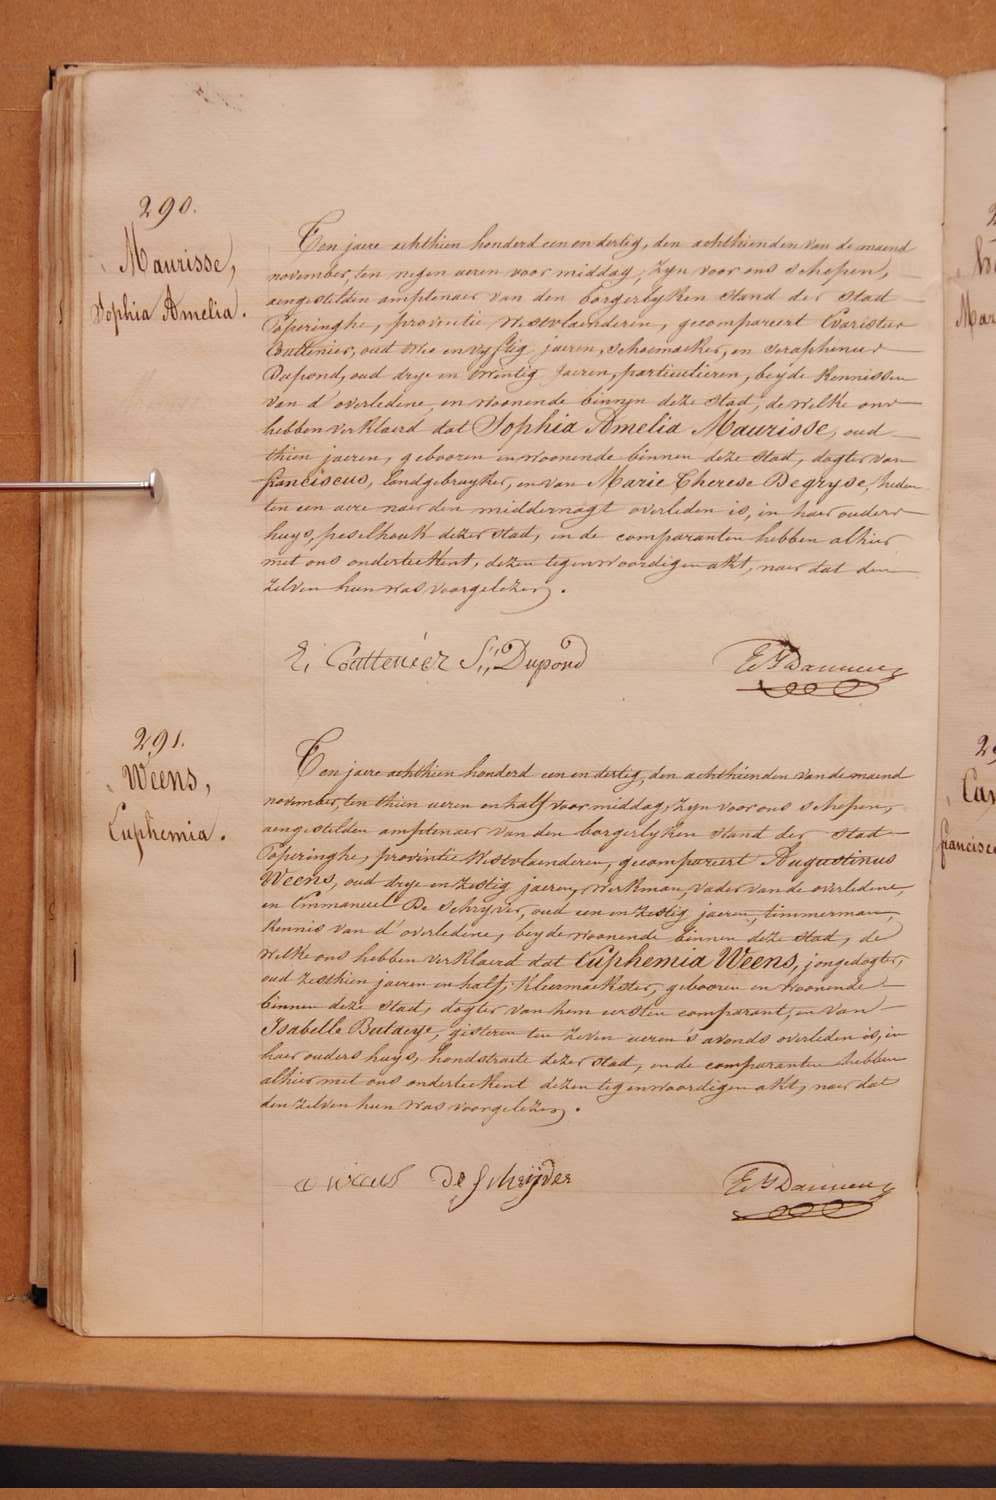 290.
Maurisse,
Sophia Amelia.
Ten jaere achthien honderd een en dertig, den achthienden van de maend
november, ten negen ueren voor middag, zyn voor ons schepen,
aengestelden amptenaer van den borgerlyken stand der stad
Poperinghe, provintie Westvlaenderen, gecompareert Evarister
Battenier, oud twee en vyftig jaeren, schoemaeker, en Seraphenus
Dupond, oud drye en twintig jaeren, particulieren, beyde kennissen
van d'overledene, en woonende binnen deze stad, de welke ons
hebben verklaerd dat Sophia Amelia Maurisse, oud
thien jaeren, gebooren en woonende binnen deze stad, dogter van
franciscus, landgebruyker, en van Marie Therese Degryse, heden
ten een uere naer den middernagt overleden is, in haer ouders
huys, peselhoek dezer stad, en de comparanten hebben alhier
met ons onderteekent, dezen tegenwoordigen akt, naer dat den
zelven hun was voorgelezen.
E, Battenier S, Dupond
291.
Weens,
Euphemia.
Ten jaere achthien honderd een en dertig, den achthienden van de maend
november, ten thien ueren en half voor middag, zyn voor ons schepen,
aengestelden amptenaer van den borgerlyken stand der stad
Poperinghe, provintie Westvlaenderen, gecompareert Augustinus
Weens, oud drye en zestig jaeren, werkman, vader van de overledene,
en Emmanuel De Schryver, oud een en zestig jaeren, timmerman,
kennis van d'overledene, beyde woonende binnen deze stad, de
welke ons hebben verklaerd dat Euphemia Weens, jongedogter,
oud zesthien jaeren en half, kleermaekster, gebooren en woonende
binnen deze stad, dogter van hem eersten comparant, en van
Isabelle Bataeye, gisteren ten zeven ueren 's avonds overleden is, in
haer ouders huys, hondstraete dezer stad, en de comparanten hebben
alhier met ons onderteekent dezen tegenwoordigen akt, naer dat
den zelven hun was voorgelezen.
a weens De schrijder